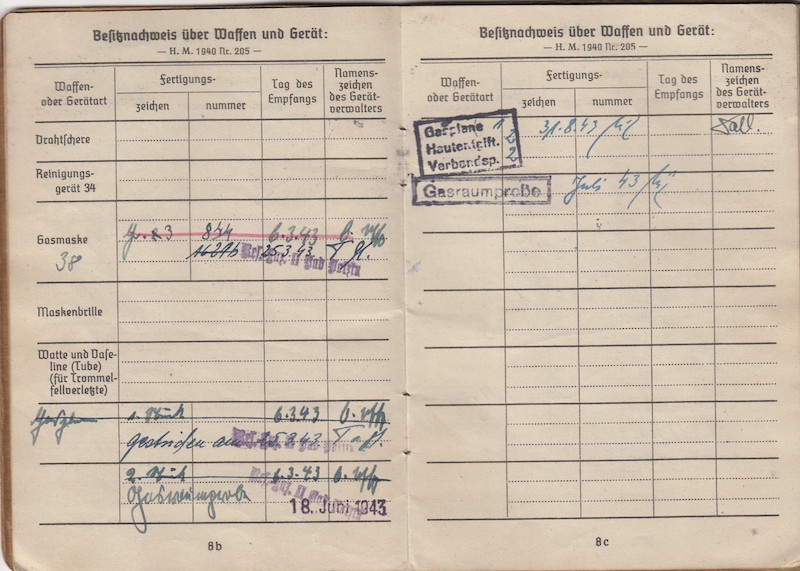 Besitznachweis über Waffen und Gerät:
— H. M. 1940 Nr. 205 —
Waffen-
oder Gerätart
Fertigungs-
zeichen
nummer
Tag des
Empfangs
Namens-
zeichen
des Gerät-
verwalters
Drahtschere
Reinigungs-
gerät 34
Gasmaske
38
844
6.3.43
25.3.43
Maskenbrille
Watte und Vase-
line (Tube)
(für Trommel-
fellverletzte)
1. Stück
6.3.43
gestrichen am 25.3.43
2 Stück
6.3.43
Gasraumprobe
18. Juni 1943
8b
Besitznachweis über Waffen und Gerät:
— H. M. 1940 Nr. 205 —
Waffen-
oder Gerätart
Fertigungs-
zeichen
nummer
Tag des
Empfangs
Namens-
zeichen
des Gerät-
verwalters
Gasplane
Hautentgift. 2
Verbandsp. 2
31.8.43
Gasraumprobe
Juli 43
8c